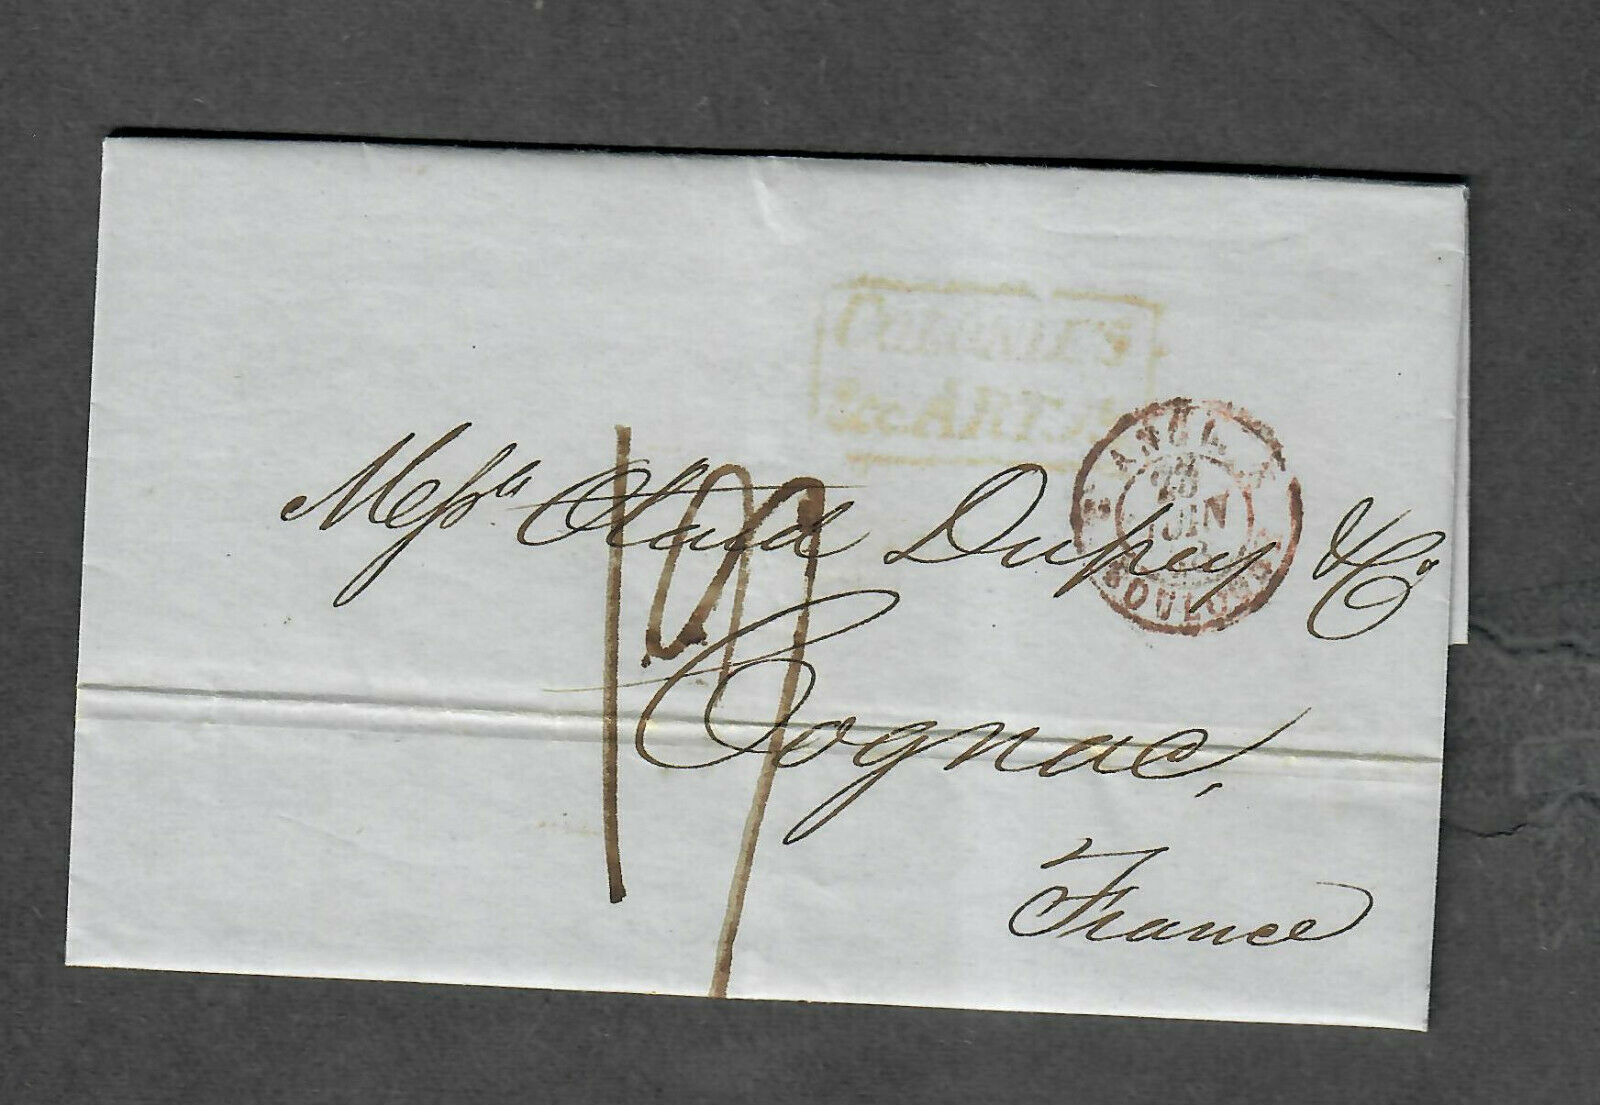 COLONIES
&c ART.
ANGL.
28
JUIN
BOULOGNE
19
Messrs Otard Dupuy & Co
Cognac,
France